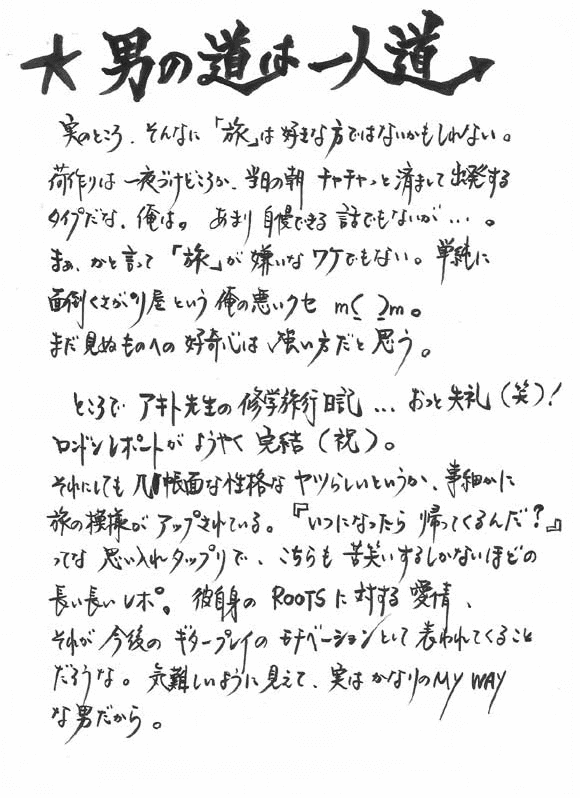 ★男の道は一人道
実のところ、そんなに「旅」は好きな方ではないかもしれない。
荷作りは一夜づけどころか、当日の朝 チャチャっと済まして出発する
タイプだな、俺は。 あまり自慢できる話でもないが…。
まぁ、かと言って「旅」が嫌いなワケでもない。単純に
面倒くさがり屋という俺の悪いクセ m(_ _)m。
まだ見ぬものへの好奇心は、強い方だと思う。
ところで アキト先生の修学旅行日記… おっと失礼(笑)!
ロンドンレポートがようやく完結(祝)。
それにしても几帳面な性格なヤツらしいというか、事細かに
旅の模様がアップされている。『いつになったら帰ってくるんだ?』
ってな思い入れタップリで、こちらも苦笑いするしかないほどの
長い長いレポ。彼自身のROOTSに対する愛情、
それが今後のギタープレイのモチベーションとして表われてくること
だろうな。気難しいように見えて、実はかなりのMY WAY
な男だから。